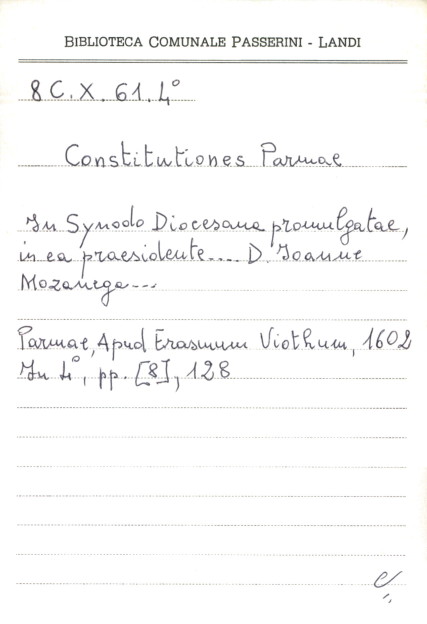 BIBLIOTECA COMUNALE PASSERINI - LANDI
8 C. X. 61. 4°
Constitutiones Parmae
In Synodo Diocesana promulgatae,
in ea praesidente.... D. Joanne
Mozanega...
Parmae, Apud Erasmum Viothum, 1602
In 4°, pp. [8], 128